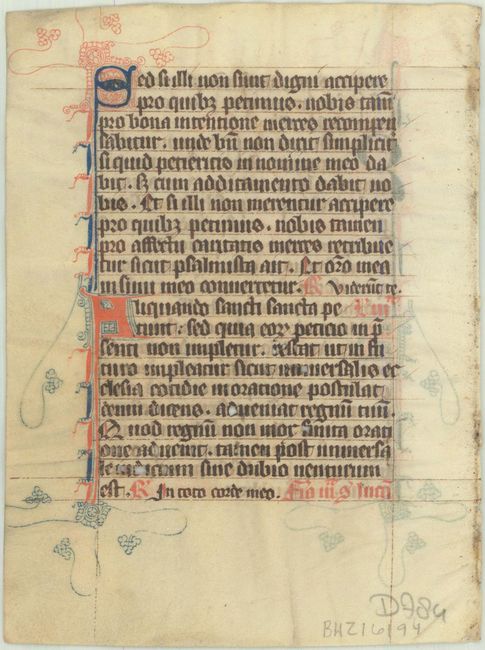 Sed si illi non sunt digni accipere
pro quibz petimus. nobis tam̄
pro bona intentione merces recompen
sabitur. unde bn̄ non dicit simplicit̉
si quid petieritis in nomine meo da
bit. sꝫ cum additamento dabit uo
bis. Et si illi non merentur accipere
pro quibz petimus. nobis tamen
pro affectu caritatis merces retribue
tur sicut psalmista ait. Et oro̅ mea
in sinu meo conuertetur. R Viderūt te.
Aliquando sancti sancta pe
tunt. sed quia eoꝝ peticio in p̄
senti non impletur. restat ut in fu
turo impleatur sicut uniuersalis ec
clesia cotidie in oratione postulat
deum dicens. adueniat regnū tuū.
Quod regnū non mox finita orati
one aduenit. tamen post uniuersa
le iudicium sine dubio uenturum
est. R In toto corde meo.
D784
BHZ16194